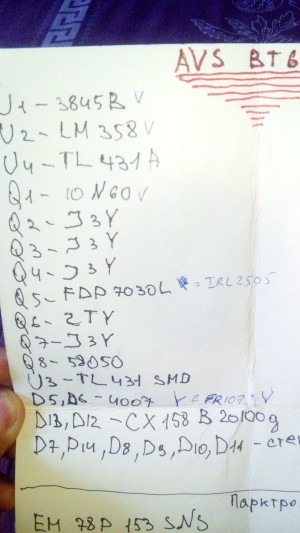 AVS BT6
U1 - 3845B V
U2 - LM 358 V
U4 - TL 431 A
Q1 - 10N60 V
Q2 - J3Y
Q3 - J3Y
Q4 - J3Y
Q5 - FDP7030L = IRL2505
Q6 - 2TY
Q7 - J3Y
Q8 - S8050
U3 - TL 431 SMD
D5, D6 - 4007 V = FR107 V
D13, D12 - CX 158 B 20100g
D7, D14, D8, D9, D10, D11 - сте
Парктро
EM 78P 153 SNS